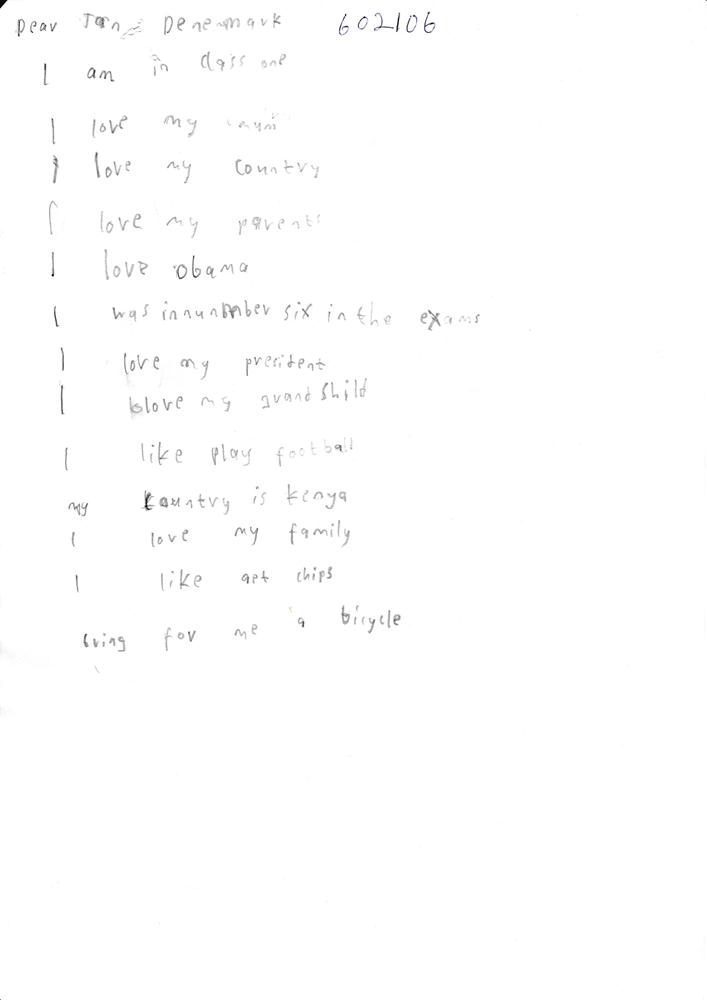 Dear Jan Denemark 602106
I am in class one
I love my
I love my country
I love my parents
I love obama
I was innunmber six in the exams
I love my president
I love my grandshild
I like play football
my country is kenya
I love my family
I like apt chips
bring for me a bicycle